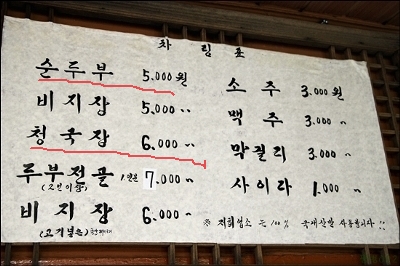 차림표
순두부 5,000원
비지장 5,000 〃
청국장 6,000 〃
두부전골 1인분 7,000 〃
(2인이상)
비지장 6,000 〃
(고기넣은)
소주 3,000원
맥주 3,000 〃
막걸리 3,000 〃
사이다 1,000 〃
※ 저희업소는 100% 국내산만 사용합니다!!